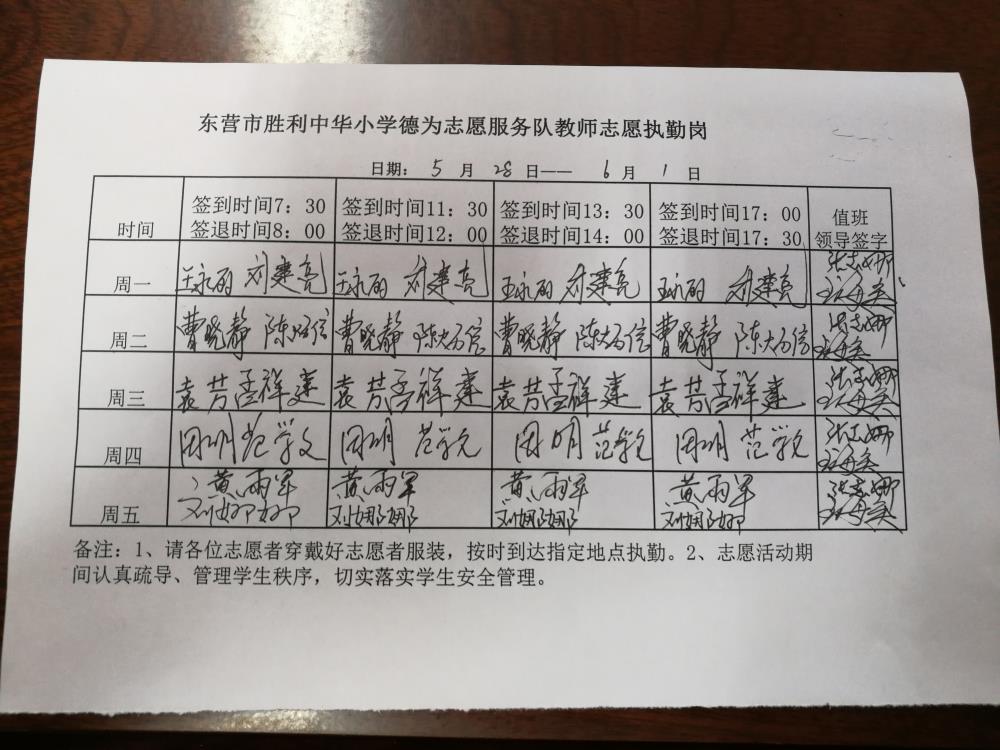 东营市胜利中华小学德为志愿服务队教师志愿执勤岗
日期：5月28日——6月1日
时间 签到时间7：30 签到时间11：30 签到时间13：30 签到时间17：00 值班
签退时间8：00 签退时间12：00 签退时间14：00 签退时间17：30 领导签字
周一 王永丽 刘建亮 王永丽 刘建亮 王永丽 刘建亮 王永丽 刘建亮 张志娜
周二 曹晓静 曹晓静 曹晓静 曹晓静 张志娜
周三 袁芳 袁芳 袁芳 袁芳 张志娜
周四 周明 周明 周明 周明 张志娜
周五 黄雨军 黄雨军 黄雨军 黄雨军 张志娜
刘娜娜 刘娜娜 刘娜娜 刘娜娜
备注：1、请各位志愿者穿戴好志愿者服装，按时到达指定地点执勤。2、志愿活动期
间认真疏导、管理学生秩序，切实落实学生安全管理。